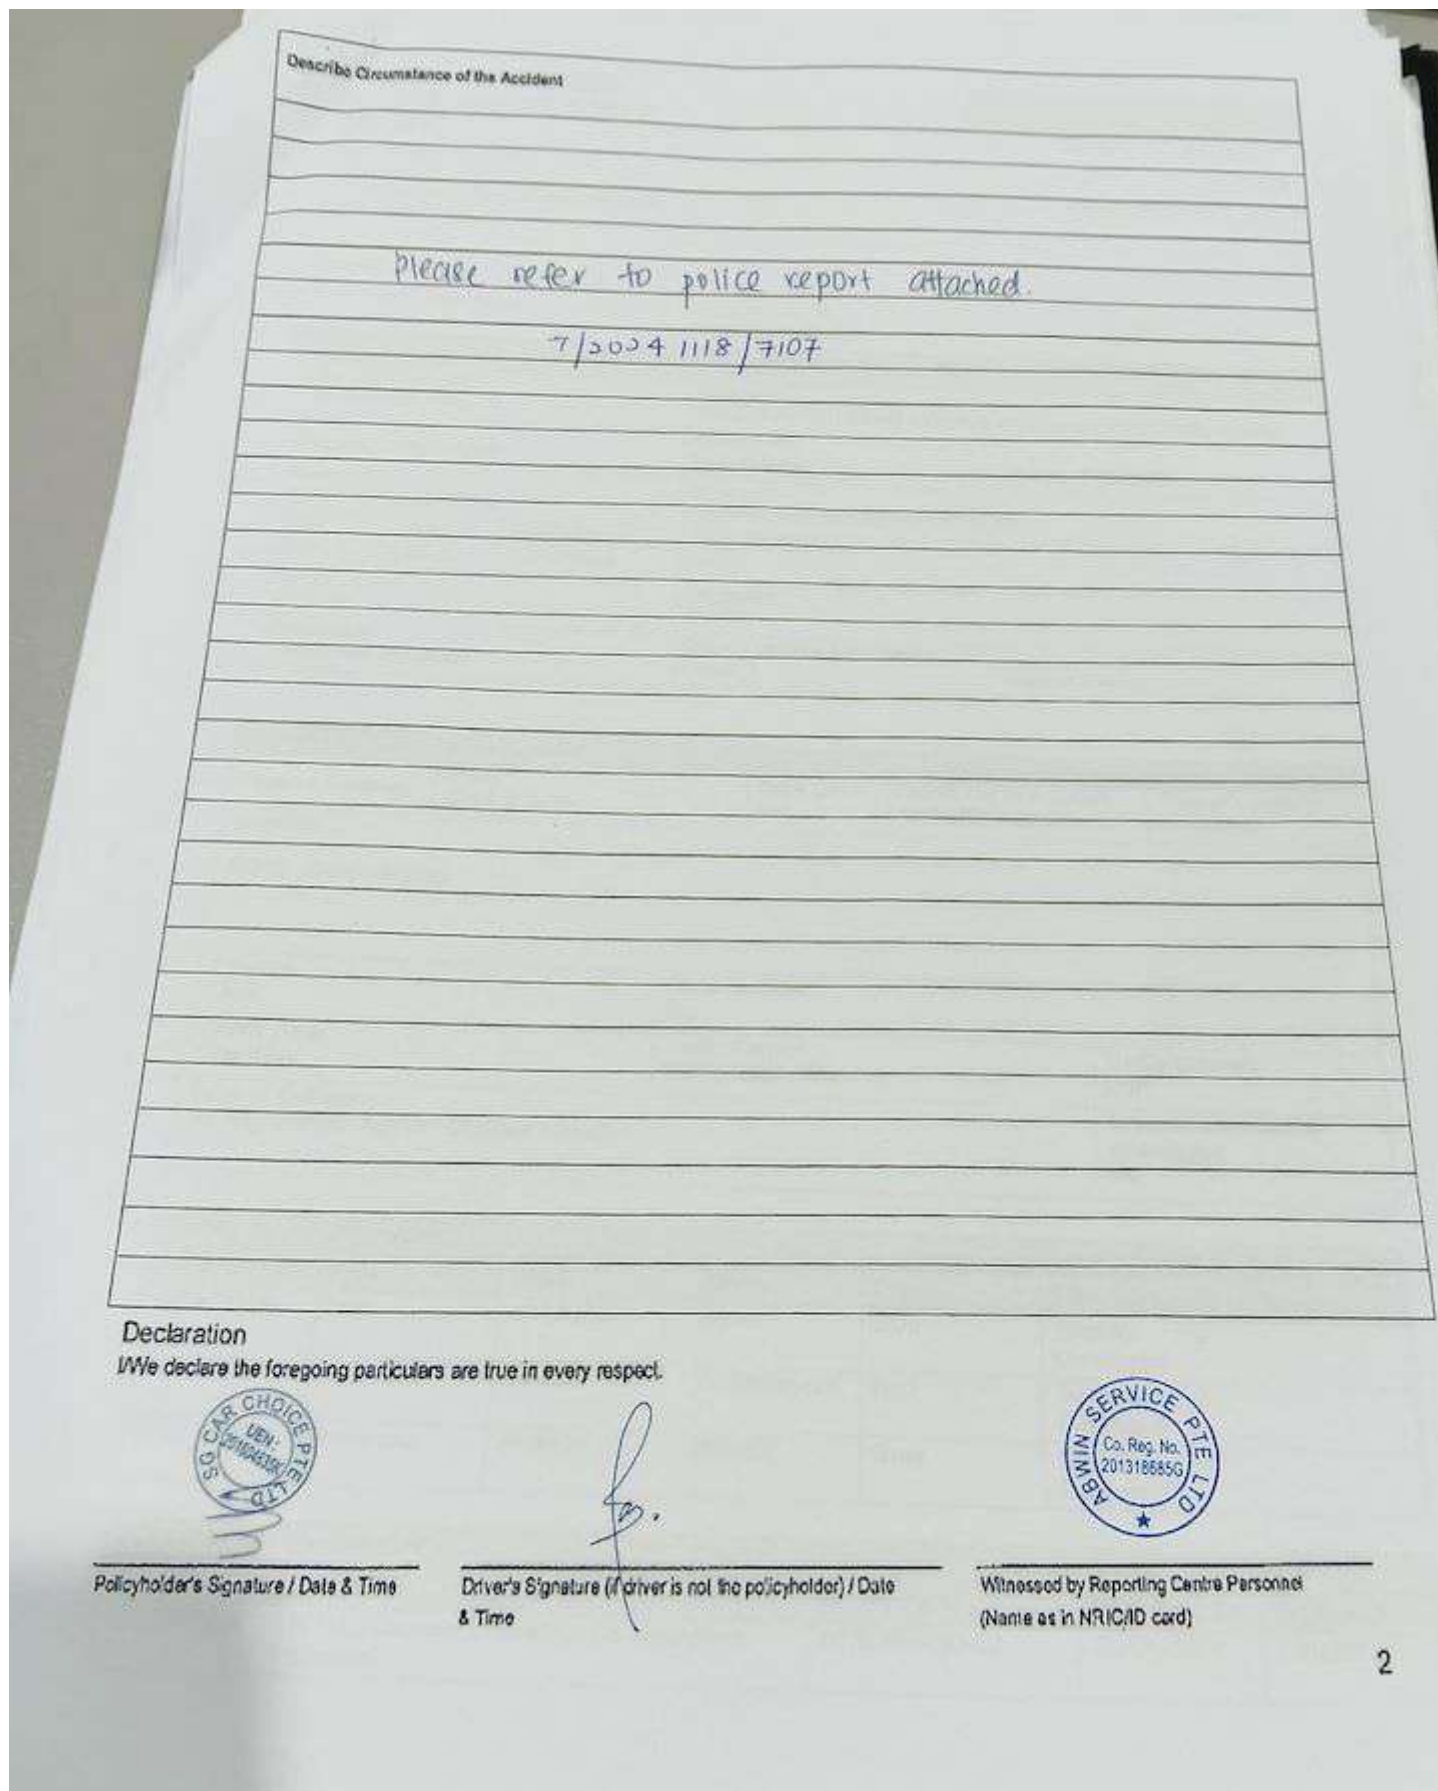 Describe Circumstance of the Accident
Please refer to police report attached.
7/20241118/7107
Declaration
I/We declare the foregoing particulars are true in every respect.
SG CAR CHOICE PTE LTD
UEN:
ABWIN SERVICE PTE LTD
Co. Reg. No.
201318685G
Policyholder's Signature / Date & Time
Driver's Signature (if driver is not the policyholder) / Date
& Time
Witnessed by Reporting Centre Personnel
(Name as in NRIC/ID card)
2